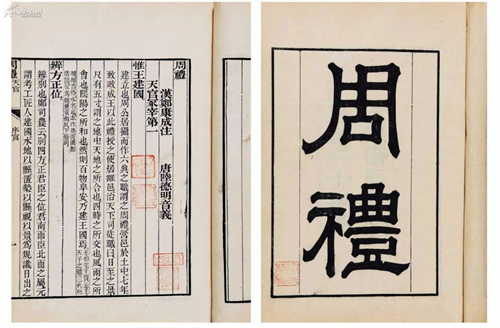 周禮
漢鄭康成注
唐陸德明音義
天官冢宰第一
惟王建國
建立也周公居攝而作六典之職謂之周禮營邑於土中七年
致政成王以此禮授之使居雒邑治天下司徒職曰日至之景
尺有五寸謂之地中天地之所合也四時之所交也風雨之所
會也陰陽之所和也然則百物阜安乃建王國焉
辨方正位
辨別也鄭司農云別四方正君臣之位君南面臣北面之屬元
謂考工匠人建國水地以縣置槷以縣眡以景爲規識日出之
周禮
天官
序官
周禮